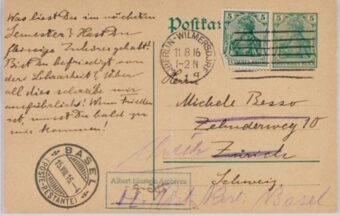 Was liest Du im nächsten
Semester? Hast Du
fleissige Zuhörer gehabt?
Bist Du befriedigt von
der Lehrarbeit? Über
all dies schreibe mir
ausführlich! Wenn Frieden
ist, musst Du bald zu
mir kommen!
Postkarte
5 5
BERLIN-WILMERSDORF
11.8.16
Michele Besso
Zehnderweg 10
Zürich
Schweiz
BASEL
15.VIII.16
(POSTE-RESTANTE)
Albert Einstein Archives
Basel